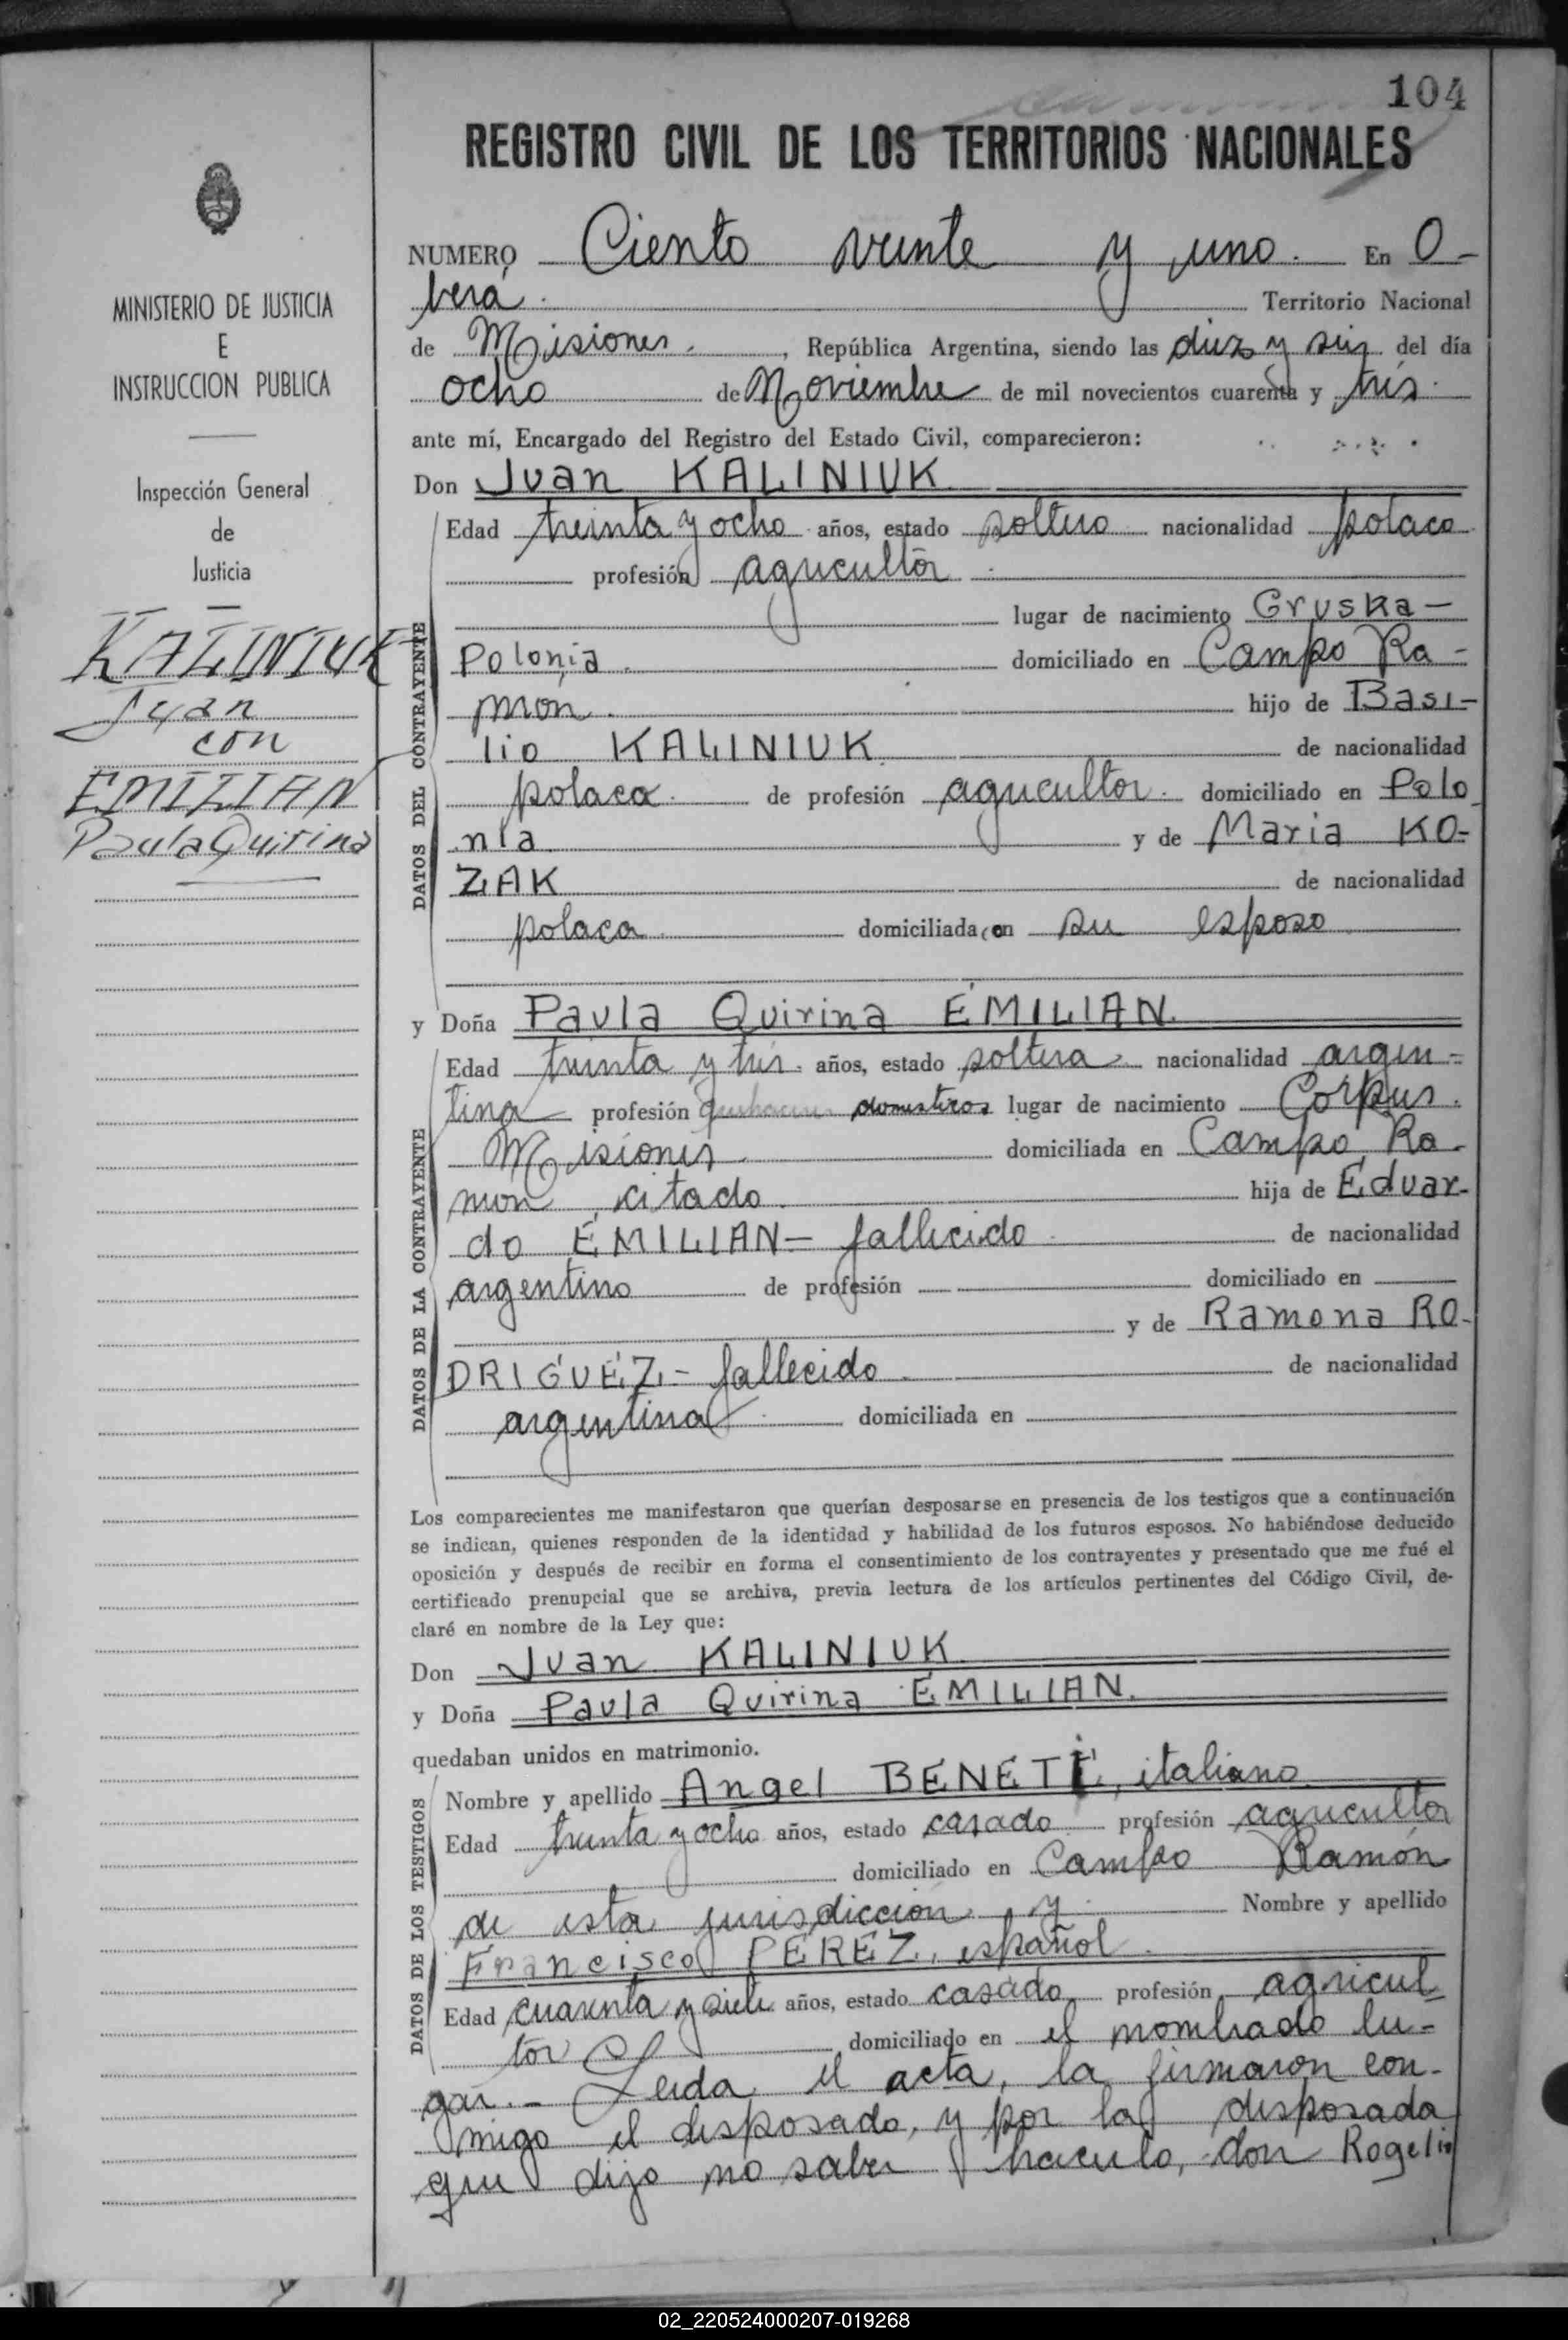 104
REGISTRO CIVIL DE LOS TERRITORIOS NACIONALES
MINISTERIO DE JUSTICIA
E
INSTRUCCION PUBLICA
Inspección General
de
Justicia
KALINIUK
Juan
con
EMILIAN
Paula Quirina
NUMERO Ciento veinte y uno. En O-
berá. Territorio Nacional
de Misiones, República Argentina, siendo las diez y seis del día
ocho de Noviembre de mil novecientos cuarenta y tres.
ante mí, Encargado del Registro del Estado Civil, comparecieron:
Don Juan KALINIUK
DATOS DEL CONTRAYENTE
Edad treinta y ocho años, estado soltero nacionalidad polaco
profesión agricultor
lugar de nacimiento Gruska-
Polonia. domiciliado en Campo Ra-
món. hijo de Basi-
lio KALINIUK de nacionalidad
polaca. de profesión agricultor. domiciliado en Polo
nia y de Maria KO-
ZAK de nacionalidad
polaca domiciliada con su esposo
y Doña Paula Quirina EMILIAN.
DATOS DE LA CONTRAYENTE
Edad treinta y tres. años, estado soltera nacionalidad argen-
tina profesión Quehaceres domesticos lugar de nacimiento Corpus.
Misiones domiciliada en Campo Ra-
mon citado hija de Eduar-
do EMILIAN- fallecido de nacionalidad
argentino de profesión domiciliado en
y de Ramona RO-
DRIGUEZ- fallecido de nacionalidad
argentina domiciliada en
Los comparecientes me manifestaron que querían desposarse en presencia de los testigos que a continuación
se indican, quienes responden de la identidad y habilidad de los futuros esposos. No habiéndose deducido
oposición y después de recibir en forma el consentimiento de los contrayentes y presentado que me fué el
certificado prenupcial que se archiva, previa lectura de los artículos pertinentes del Código Civil, de-
claré en nombre de la Ley que:
Don Juan KALINIUK
y Doña Paula Quirina EMILIAN.
quedaban unidos en matrimonio.
DATOS DE LOS TESTIGOS
Nombre y apellido Angel BENETI, italiano
Edad treinta y ocho años, estado casado profesión agricultor
domiciliado en Campo Ramón
de esta jurisdicción y Nombre y apellido
Francisco PEREZ, español
Edad cuarenta y siete años, estado casado profesión agricul-
tor domiciliado en el nombrado lu-
gar.- Leida el acta, la firmaron con-
migo el desposado, y por la desposada
que dijo no saber hacerlo, don Rogelio
02_220524000207-019268